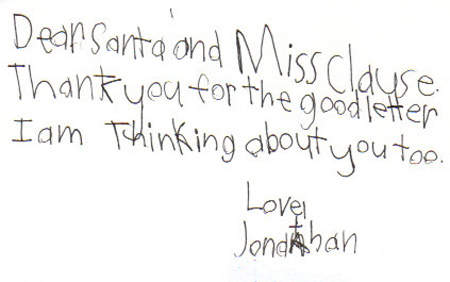 Dear Santa and Miss Clause.
Thank you for the good letter
I am Thinking about you too.
Love,
Jonathan